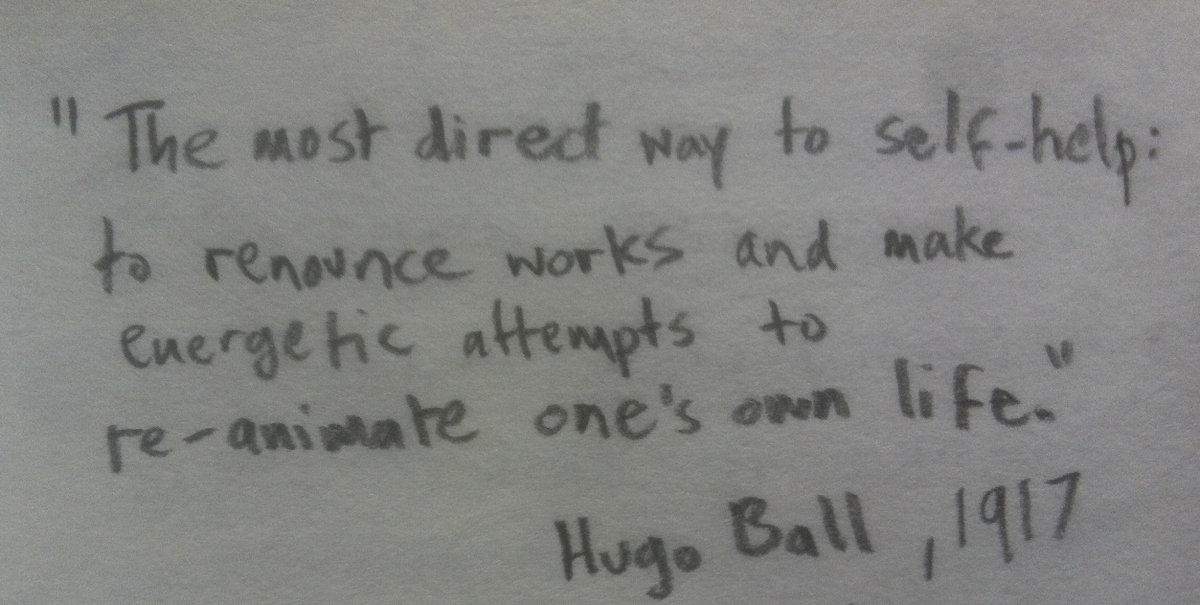 "The most direct way to self-help:
to renounce works and make
energetic attempts to
re-animate one's own life."
Hugo Ball, 1917